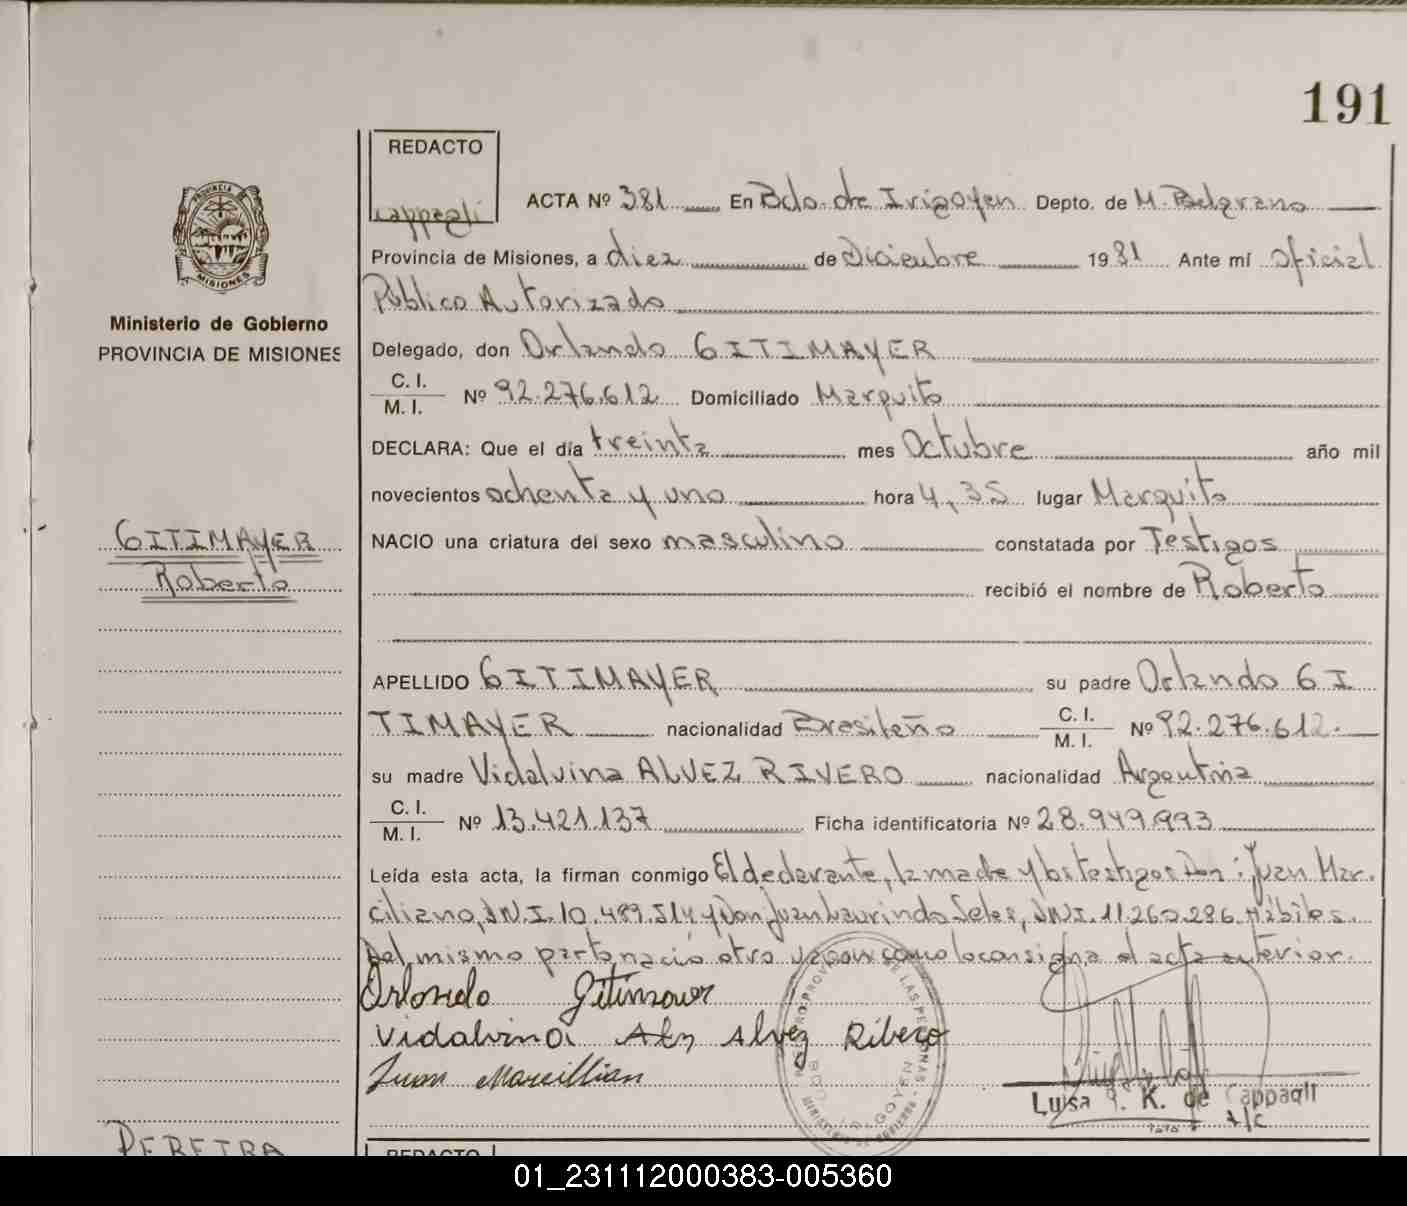 191
REDACTO
Cappagli
ACTA Nº 381 En Bdo. de Irigoyen Depto. de M. Belgrano
Provincia de Misiones, a diez de Diciembre 1981 Ante mí Oficial
Público Autorizado
Delegado, don Orlando GITIMAYER
C. I.
M. I. Nº 92.276.612 Domiciliado Marquito
DECLARA: Que el día treinta mes Octubre año mil
novecientos ochenta y uno hora 4,35 lugar Marquito
NACIO una criatura del sexo masculino constatada por Testigos
recibió el nombre de Roberto
APELLIDO GITIMAYER su padre Orlando GI
TIMAYER nacionalidad Brasileño C. I. M. I. Nº 92.276.612.
su madre Vidalvina ALVEZ RIVERO nacionalidad Argentina
C. I.
M. I. Nº 13.421.137 Ficha identificatoria Nº 28.949.993
Leída esta acta, la firman conmigo El declarante, la madre y los testigos Don: Juan Mar.
ciliano, D.N.I. 10.489.514 y Don Juan Laurindo Seles, DNI. 11.260.286 Hábiles.
Del mismo parto nació otro varon como lo consigna el acta anterior.
Orlando Gitimayer
Vidalvina Alz Alvez Ribero
Juan Marcillian
Luisa K. de Cappagli
a/c
PROVINCIA DE
MISIONES
Ministerio de Gobierno
PROVINCIA DE MISIONES
GITIMAYER
Roberto
PEREIRA
REDACTO
01_231112000383-005360